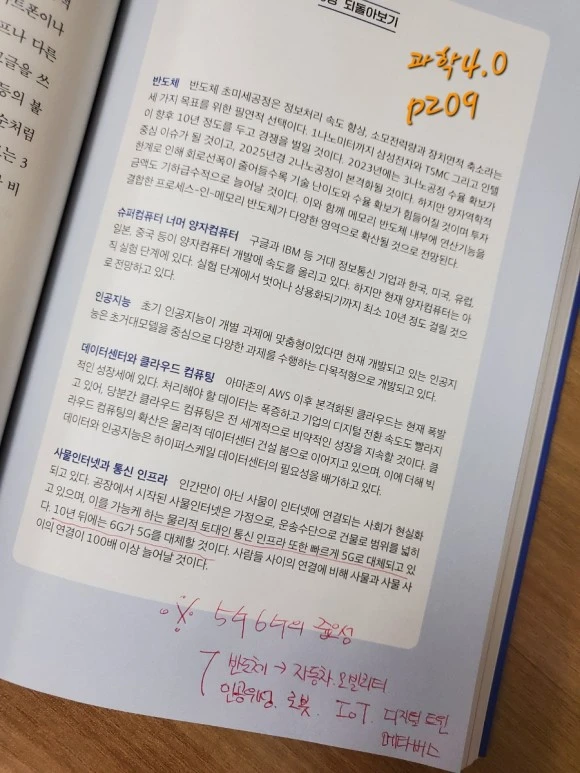 되돌아보기
과학4.0
p209
트폰이나
프나 다른
글을 쓰
등의 불
순처럼
는 3
비
반도체 반도체 초미세공정은 정보처리 속도 향상, 소모전력량과 장치면적 축소라는
세 가지 목표를 위한 필연적 선택이다. 1나노미터까지 삼성전자와 TSMC 그리고 인텔
이 향후 10년 정도를 두고 경쟁을 벌일 것이다. 2023년에는 3나노공정 수율 확보가
중심 이슈가 될 것이고, 2025년경 2나노공정이 본격화될 것이다. 하지만 양자역학적
한계로 인해 회로선폭이 줄어들수록 기술 난이도와 수율 확보가 힘들어질 것이며 투자
금액도 기하급수적으로 늘어날 것이다. 이와 함께 메모리 반도체 내부에 연산기능을
결합한 프로세스-인-메모리 반도체가 다양한 영역으로 확산될 것으로 전망된다.
슈퍼컴퓨터 너머 양자컴퓨터 구글과 IBM 등 거대 정보통신 기업과 한국, 미국, 유럽,
일본, 중국 등이 양자컴퓨터 개발에 속도를 올리고 있다. 하지만 현재 양자컴퓨터는 아
직 실험 단계에 있다. 실험 단계에서 벗어나 상용화되기까지 최소 10년 정도 걸릴 것으
로 전망하고 있다.
인공지능 초기 인공지능이 개별 과제에 맞춤형이었다면 현재 개발되고 있는 인공지
능은 초거대모델을 중심으로 다양한 과제를 수행하는 다목적형으로 개발되고 있다.
데이터센터와 클라우드 컴퓨팅 아마존의 AWS 이후 본격화된 클라우드는 현재 폭발
적인 성장세에 있다. 처리해야 할 데이터는 폭증하고 기업의 디지털 전환 속도도 빨라지
고 있어, 당분간 클라우드 컴퓨팅은 전 세계적으로 비약적인 성장을 지속할 것이다. 클
라우드 컴퓨팅의 확산은 물리적 데이터센터 건설 붐으로 이어지고 있으며, 이에 더해 빅
데이터와 인공지능은 하이퍼스케일 데이터센터의 필요성을 배가하고 있다.
사물인터넷과 통신 인프라 인간만이 아닌 사물이 인터넷에 연결되는 사회가 현실화
되고 있다. 공장에서 시작된 사물인터넷은 가정으로, 운송수단으로 건물로 범위를 넓히
고 있으며, 이를 가능케 하는 물리적 토대인 통신 인프라 또한 빠르게 5G로 대체되고 있
다. 10년 뒤에는 6G가 5G를 대체할 것이다. 사람들 사이의 연결에 비해 사물과 사물 사
이의 연결이 100배 이상 늘어날 것이다.
※ 5G 6G의 중요성
반도체 → 자동차. 모빌리티
인공위성. 로봇. IoT. 디지털 트윈
메타버스